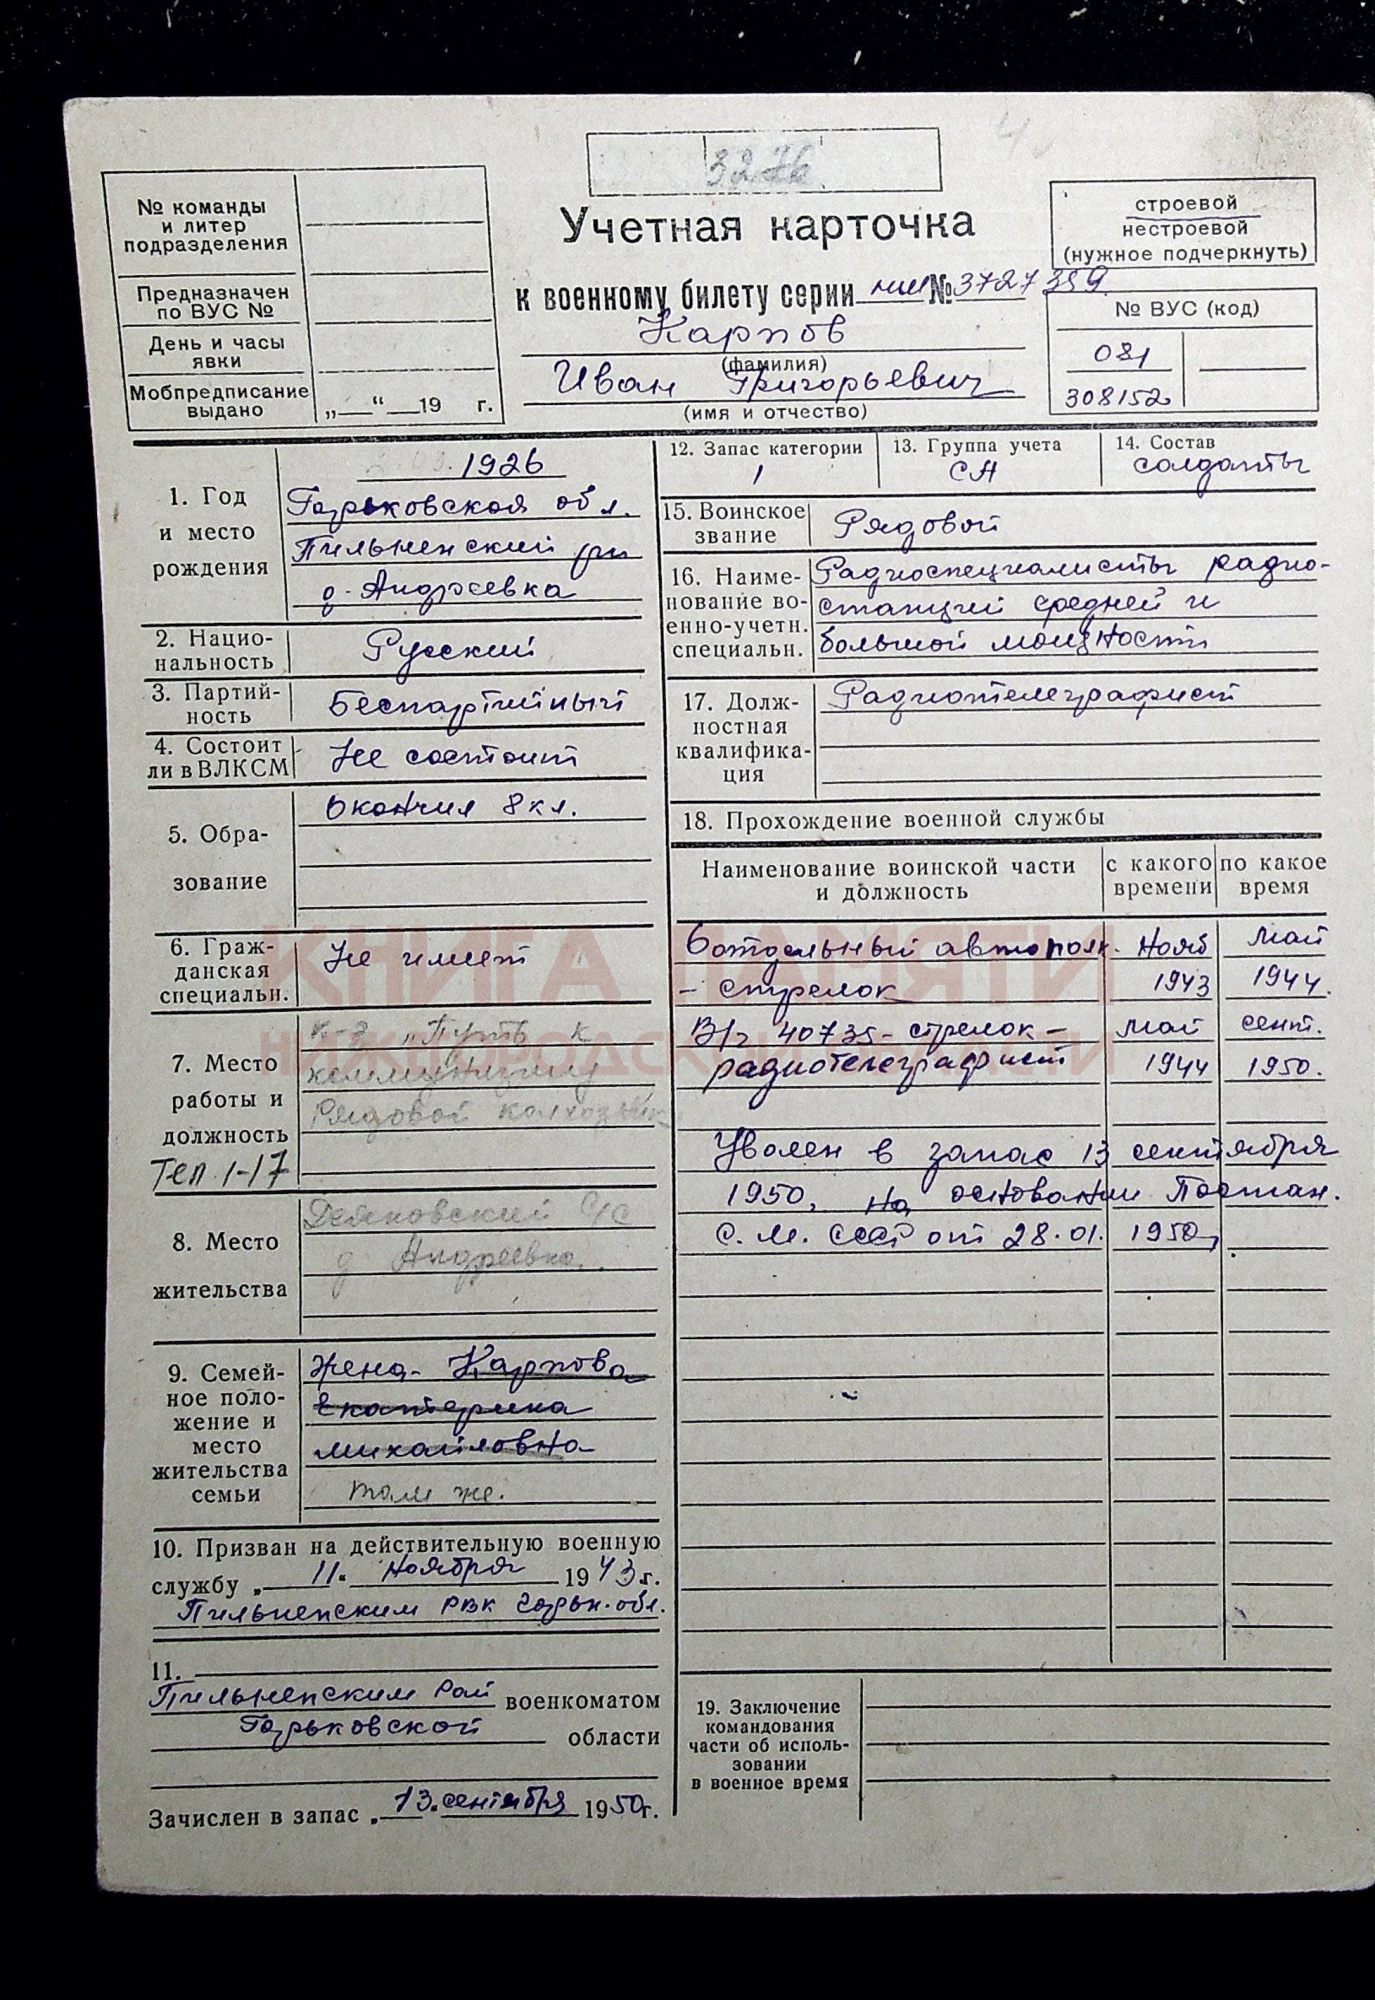 3276
№ команды
и литер
подразделения
Предназначен
по ВУС №
День и часы
явки
Мобпредписание
выдано „ “ 19 г.
Учетная карточка
к военному билету серии нш № 3727359
Карпов
(фамилия)
Иван Григорьевич
(имя и отчество)
строевой
нестроевой
(нужное подчеркнуть)
№ ВУС (код)
081
308152
1. Год
и место
рождения
1926
Горьковская обл.
Пильненский рн
д. Андреевка
2. Нацио-
нальность
Русский
3. Партий-
ность
Беспартийный
4. Состоит
ли в ВЛКСМ
Не состоит
5. Обра-
зование
Окончил 8 кл.
6. Граж-
данская
специальн.
Не имеет
7. Место
работы и
должность
Тел. 1-17
к-з „Путь к
коммунизму
Рядовой колхозник
8. Место
жительства
Деяновский с/с
д Андреевка.
9. Семей-
ное поло-
жение и
место
жительства
семьи
Жена- Карпова
Екатерина
Михайловна
там же.
10. Призван на действительную военную
службу „ 11 “ Ноября 1943 г.
Пильненским РВК Горьк. обл.
11.
Пильненским Рай военкоматом
Горьковской области
Зачислен в запас „ 13 “ сентября 1950 г.
12. Запас категории
1
13. Группа учета
СА
14. Состав
солдаты
15. Воинское
звание
Рядовой
16. Наиме-
нование во-
енно-учетн.
специальн.
Радиоспециалисты радио-
станций средней и
большой мощности
17. Долж-
ностная
квалифика-
ция
Радиотелеграфист
18. Прохождение военной службы
Наименование воинской части
и должность
с какого
времени
по какое
время
6 отдельный автополк. Нояб Май
- стрелок 1943 1944.
В/ч 40735 - стрелок - май сент.
радиотелеграфист 1944 1950.
Уволен в запас 13 сентября
1950, на основании Постан.
С. М. СССР от 28.01. 1950,
19. Заключение
командования
части об исполь-
зовании
в военное время
КНИГА ПАМЯТИ
НИЖЕГОРОДСКОЙ ОБЛАСТИ